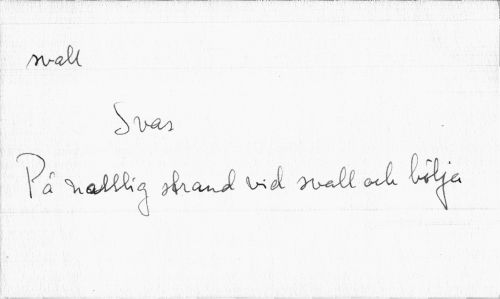 svall
Svas
På nattlig strand vid svall och bölja